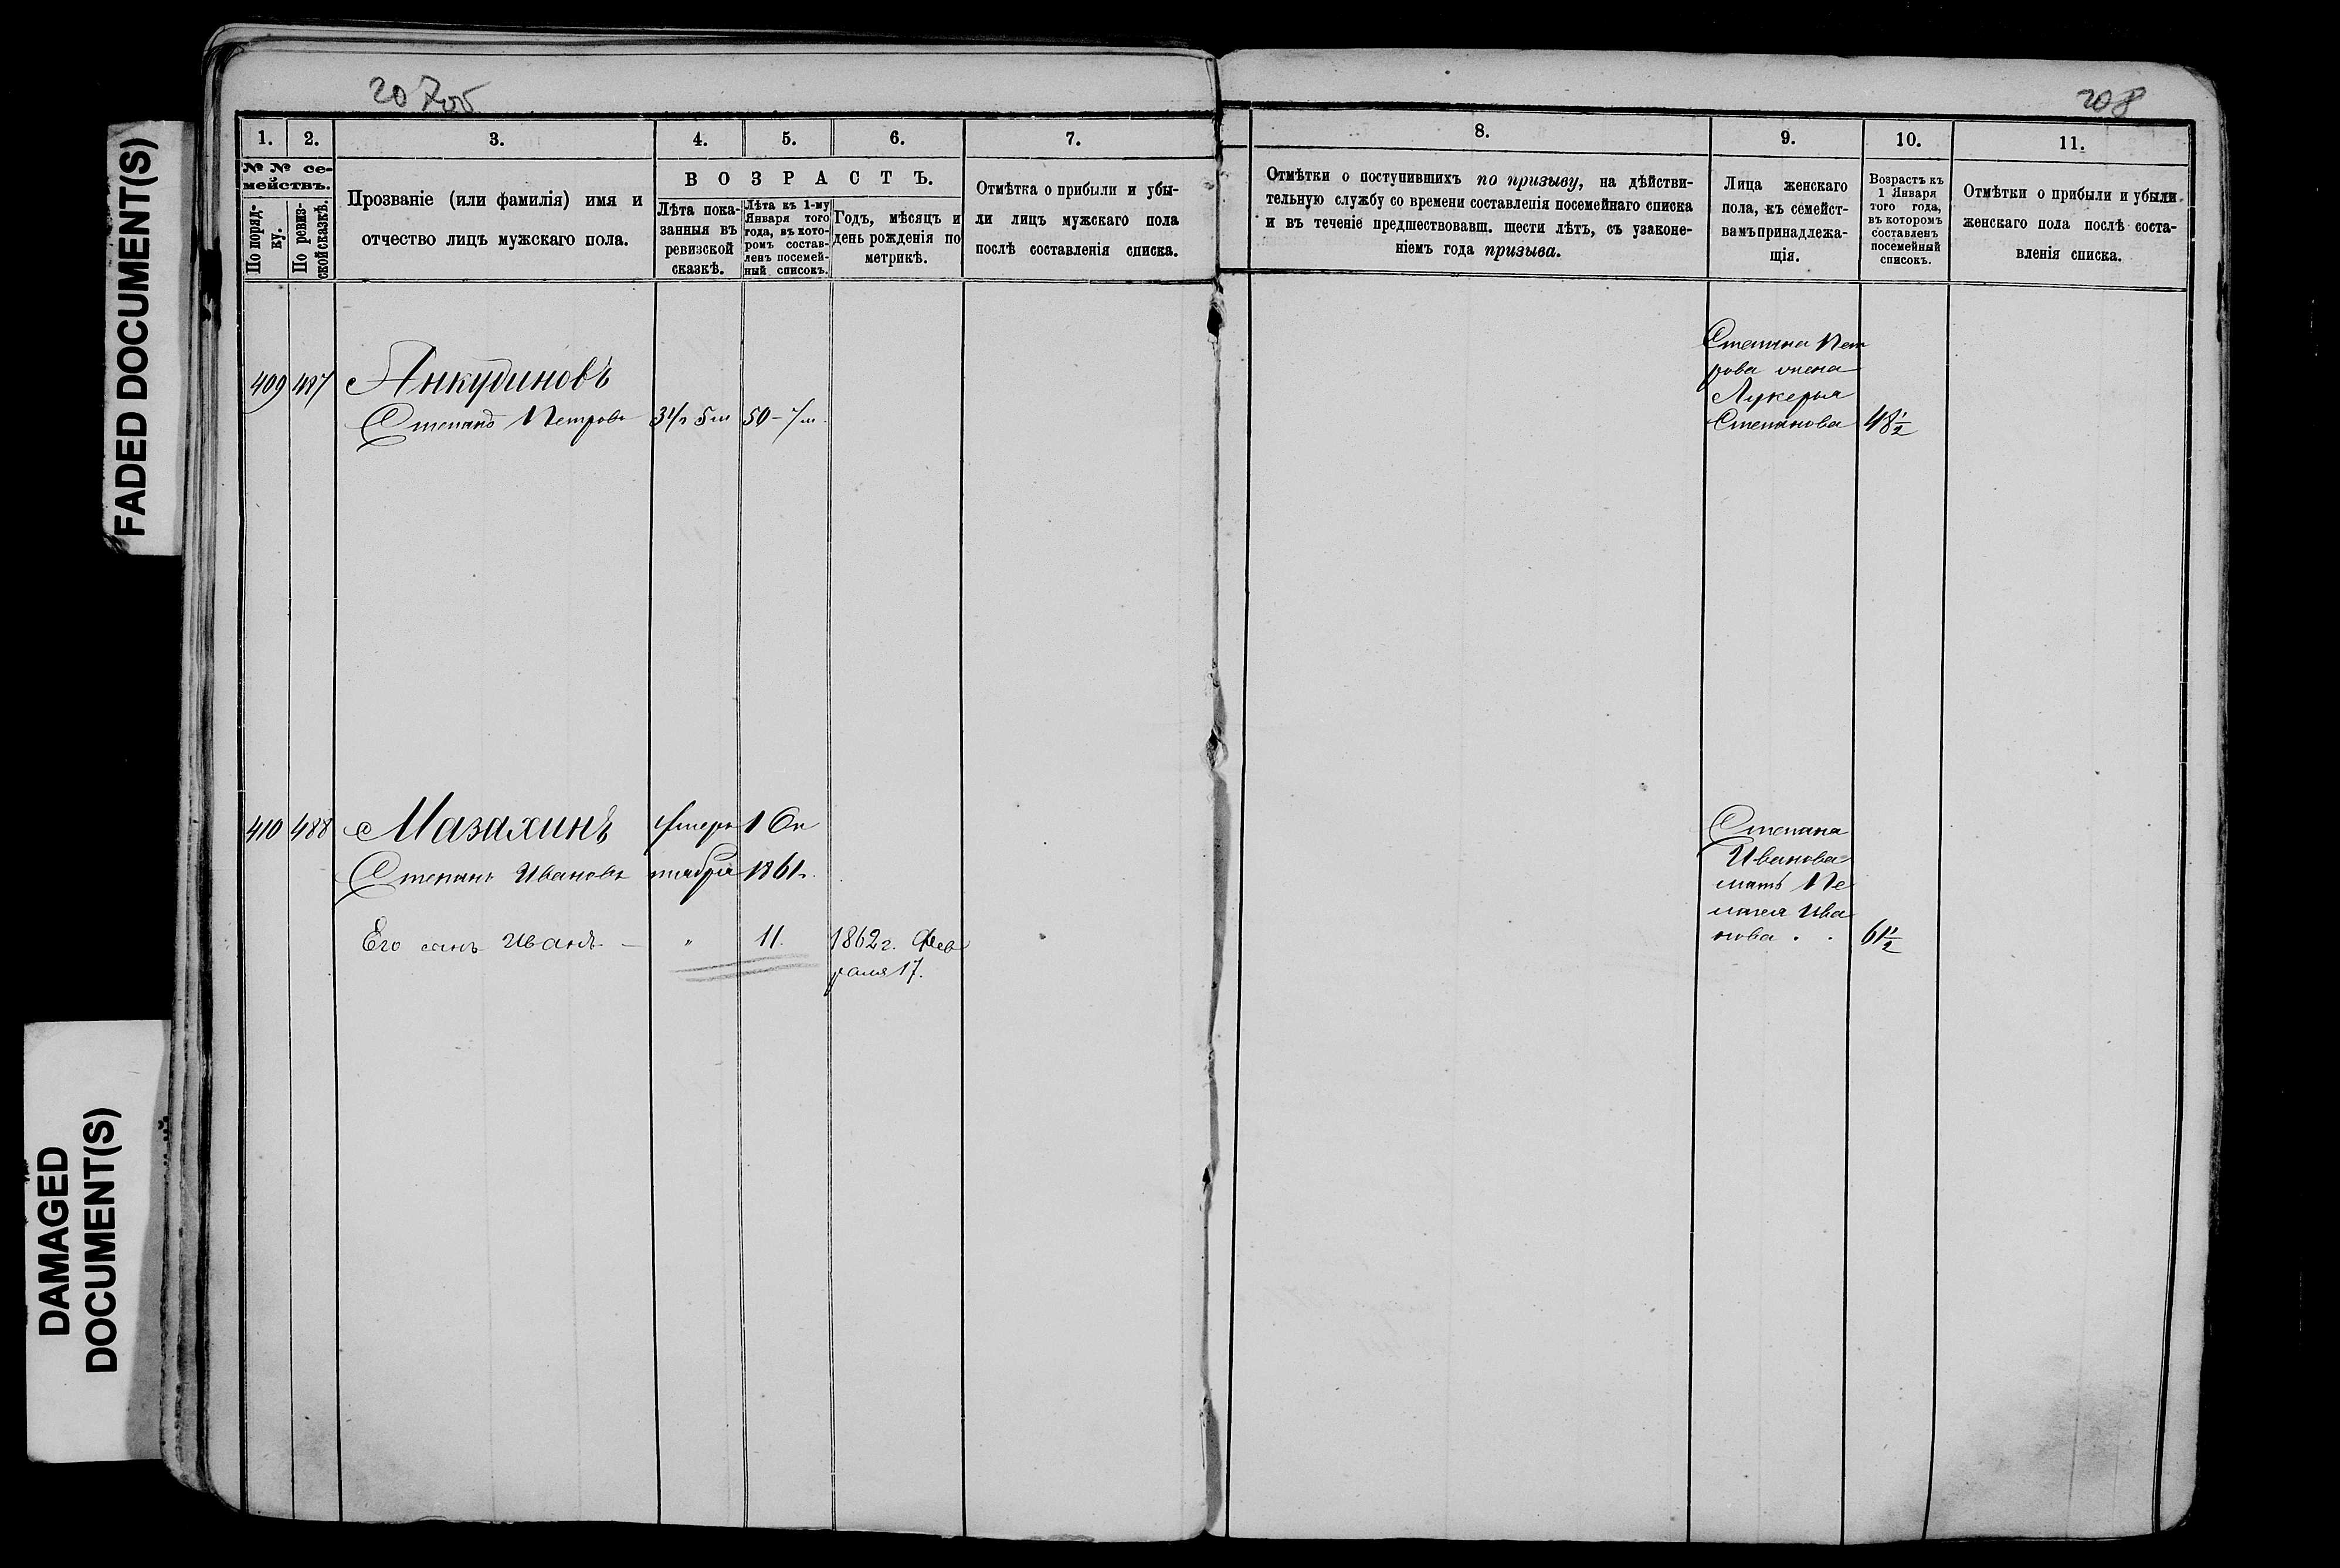 FADED DOCUMENT(S)
DAMAGED
DOCUMENT(S)
207об
208
1. 2. 3. 4. 5. 6. 7.
№ № се-
мействъ.
По поряд-
ку.
По ревиз-
ской сказкѣ.
Прозваніе (или фамилія) имя и
отчество лицъ мужскаго пола.
ВОЗРАСТЪ.
Лѣта пока-
занныя въ
ревизской
сказкѣ.
Лѣта къ 1-му
Января того
года, въ кото-
ромъ состав-
ленъ посемей-
ный списокъ.
Годъ, мѣсяцъ и
день рожденія по
метрикѣ.
Отмѣтка о прибыли и убы-
ли лицъ мужскаго пола
послѣ составленія списка.
409 487 Анкудиновъ
Степанъ Петровъ 50
410 488 Мазахинъ умеръ 1 Ок
Степанъ Ивановъ тября 1861г.
Его сынъ Иванъ. — „ 11. 1862 г. Фев
раля 17.
8. 9. 10. 11.
Отмѣтки о поступившихъ по призыву, на дѣйстви-
тельную службу со времени составленія посемейнаго списка
и въ теченіе предшествовавш. шести лѣтъ, съ узаконе-
ніемъ года призыва.
Лица женскаго
пола, къ семейст-
вамъ принадлежа-
щія.
Возрастъ къ
1 Января
того года,
въ которомъ
составленъ
посемейный
списокъ.
Отмѣтки о прибыли и убыли
женскаго пола послѣ соста-
вленія списка.
Степана Пет
рова жена
Лукерья
Степанова 48 1/2
Степана
Иванова
мать Пе
лагея Ива
нова . . 61 1/2